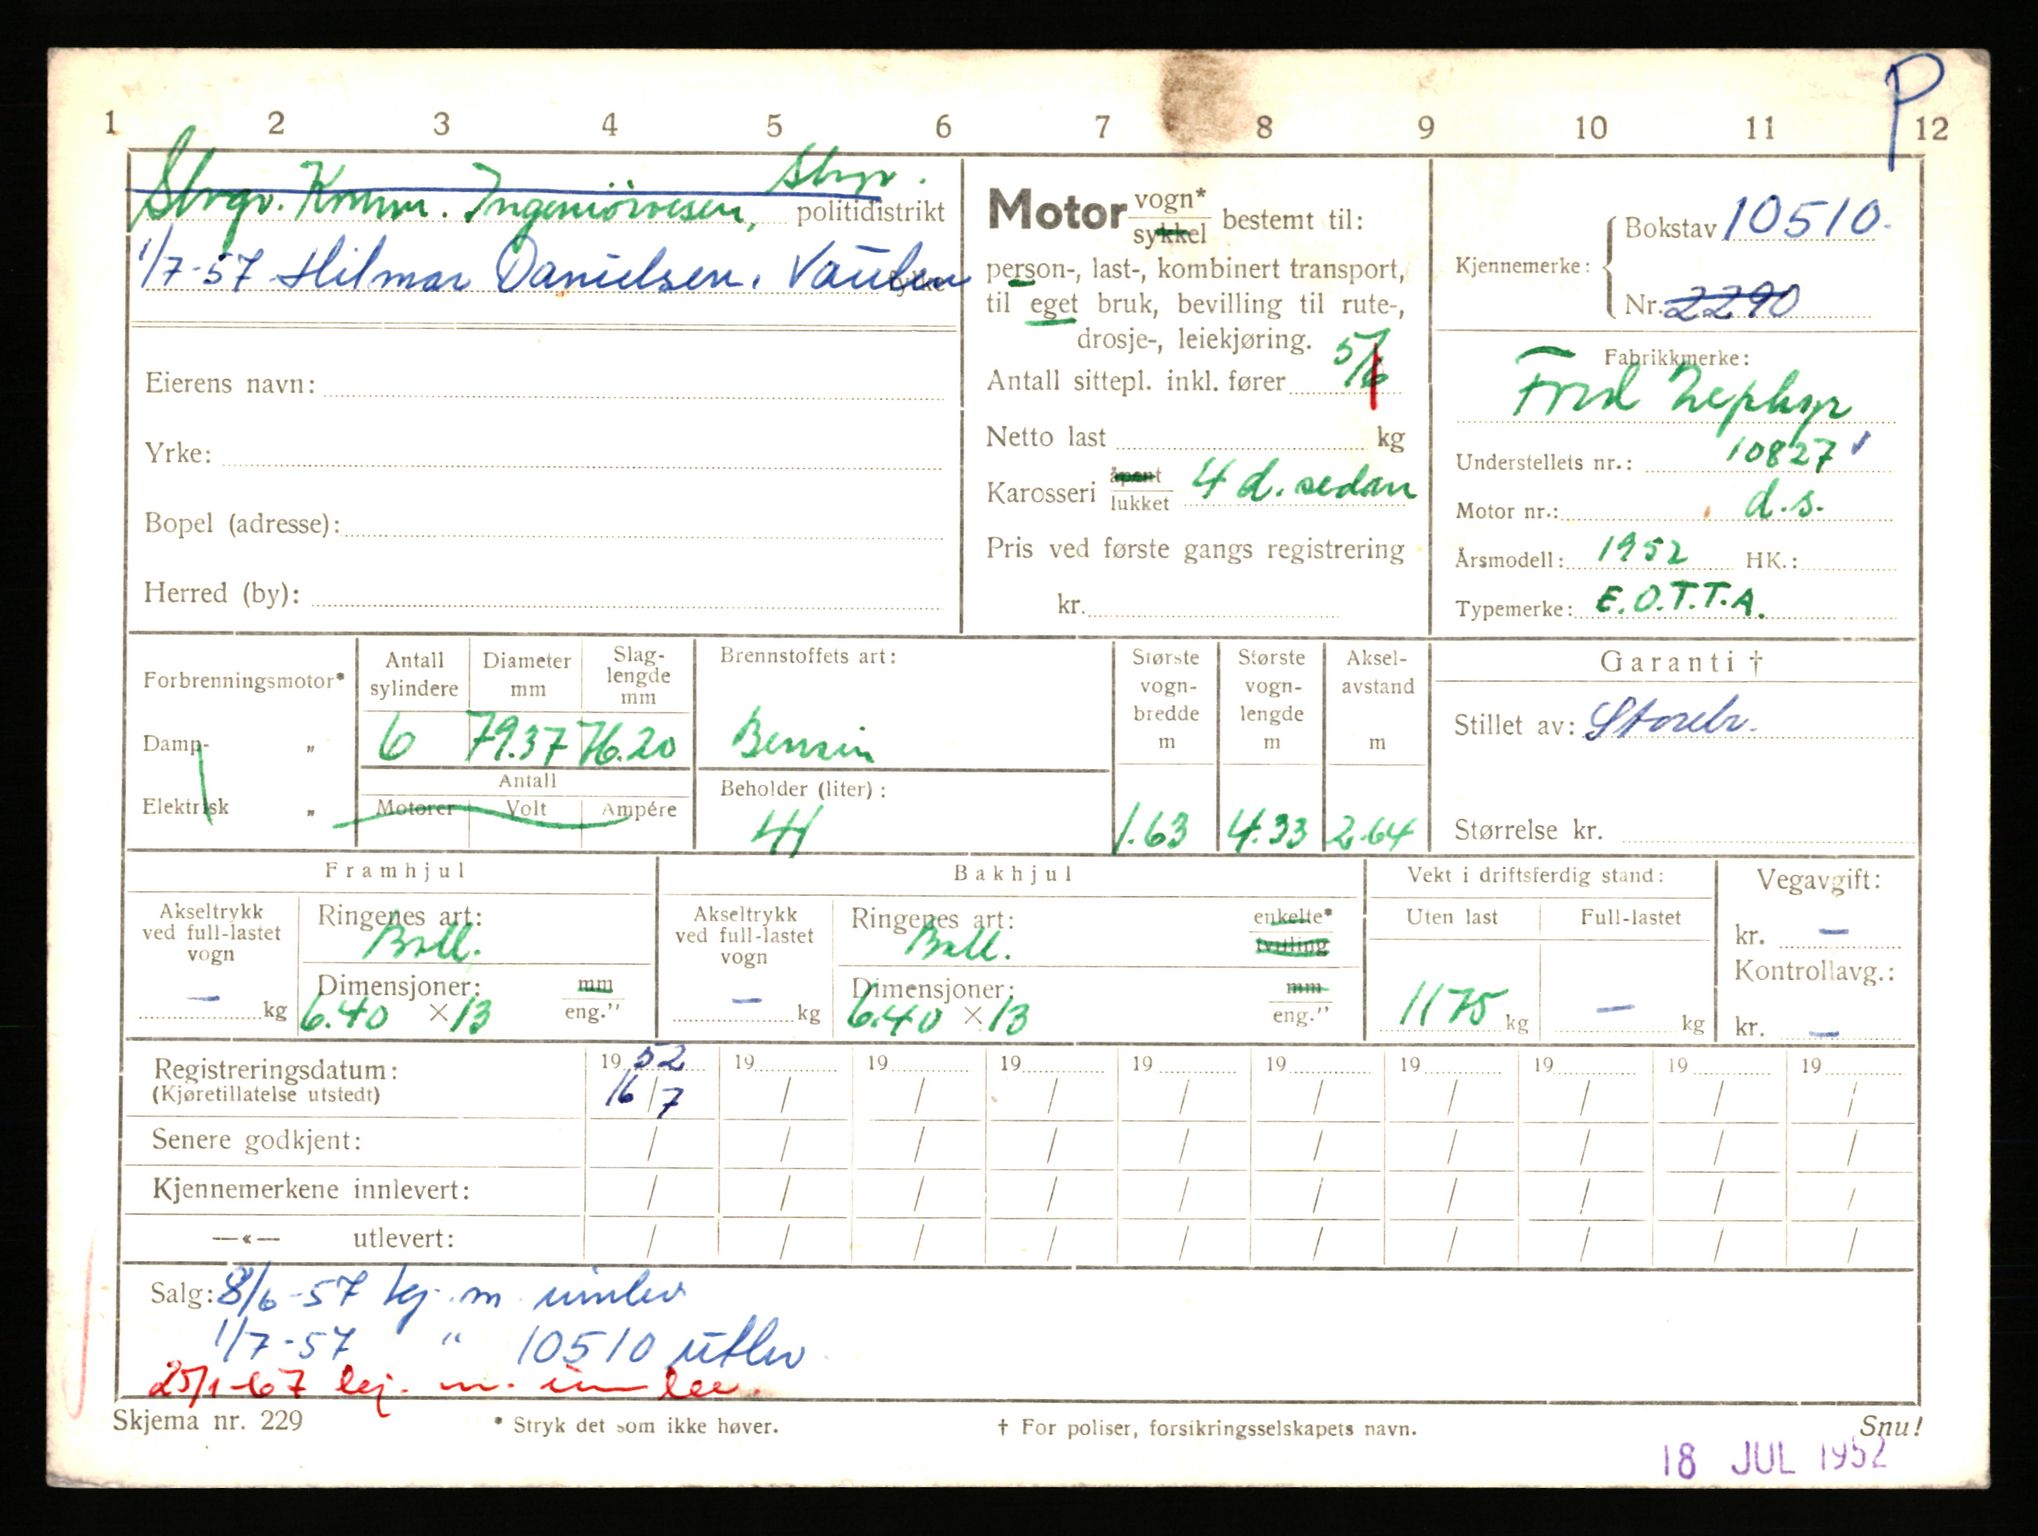 P
1 2 3 4 5 6 7 8 9 10 11 12
Stvgr. Komm. Ingeniørvesen, Stvgr. politidistrikt
1/7-57 Hilmar Danielsen, Vaulen fylke
Eierens navn:
Yrke:
Bopel (adresse):
Herred (by):
Motor vogn* sykkel bestemt til:
person-, last-, kombinert transport,
til eget bruk, bevilling til rute-,
drosje-, leiekjøring.
Antall sittepl. inkl. fører 5/6
Netto last kg
Karosseri åpent lukket 4 d. sedan
Pris ved første gangs registrering
kr.
Kjennemerke: Bokstav 10510.
Nr. 2290
Fabrikkmerke:
Ford Zephyr
Understellets nr.: 10827
Motor nr.: d.s.
Årsmodell: 1952 HK.:
Typemerke: E.O.T.T.A.
Forbrenningsmotor*
Damp- „
Elektrisk „
Antall sylindere Diameter mm Slag-lengde mm
6 79.37 76.20
Antall
Motorer Volt Ampére
Brennstoffets art:
Bensin
Beholder (liter):
41
Største vogn-bredde m Største vogn-lengde m Aksel-avstand m
1.63 4.33 2.64
Garanti †
Stillet av: Storebr.
Størrelse kr.
Framhjul
Akseltrykk
ved full-lastet
vogn
– kg
Ringenes art:
Ball.
Dimensjoner: mm
6.40 × 13 eng."
Bakhjul
Akseltrykk
ved full-lastet
vogn
– kg
Ringenes art: enkelte*
Ball. tvilling
Dimensjoner: mm
6.40 × 13 eng."
Vekt i driftsferdig stand:
Uten last Full-lastet
1175 kg – kg
Vegavgift:
kr. –
Kontrollavg.:
kr. –
Registreringsdatum: 19 52 19 19 19 19 19 19 19 19 19
(Kjøretillatelse utstedt) 16/7 / / / / / / / / /
Senere godkjent: / / / / / / / / / /
Kjennemerkene innlevert: / / / / / / / / / /
—«— utlevert: / / / / / / / / / /
Salg: 8/6-57 kj. m innlev
1/7-57 " 10510 utlev
25/1-67 kj. m. innlev.
Skjema nr. 229 * Stryk det som ikke høver. † For poliser, forsikringsselskapets navn. Snu!
18 JUL 1952